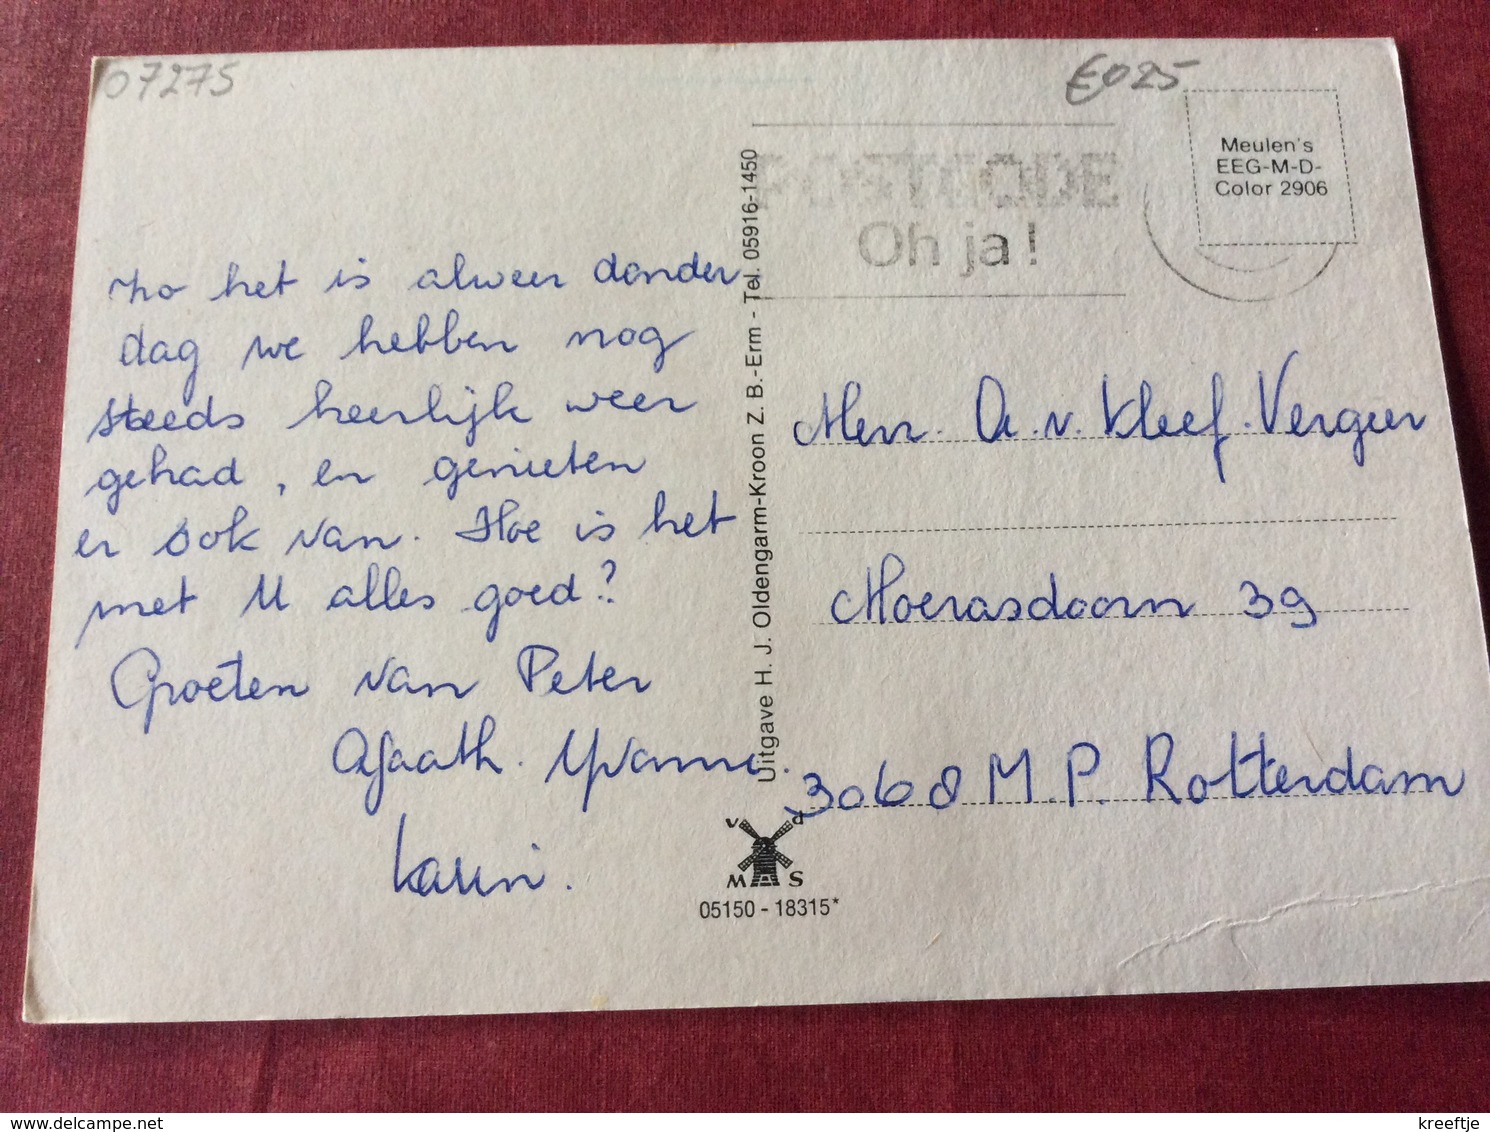 07275
€025
Meulen's
EEG-M-D-
Color 2906
POSTCODE
Oh ja!
Zo het is alweer donder
dag we hebben nog
steeds heerlijk weer
gehad, en genieten
er ook van. Hoe is het
met U alles goed?
Groeten van Peter
Agaath. Yvonne.
Karin.
Uitgave H. J. Oldengarm-Kroon Z. B.-Erm - Tel. 05916-1450
Mevr. A. v. Kleef. Vergeer
Moerasdoorn 39
3068 M.P. Rotterdam
v d
M S
05150 - 18315*
kreeftje